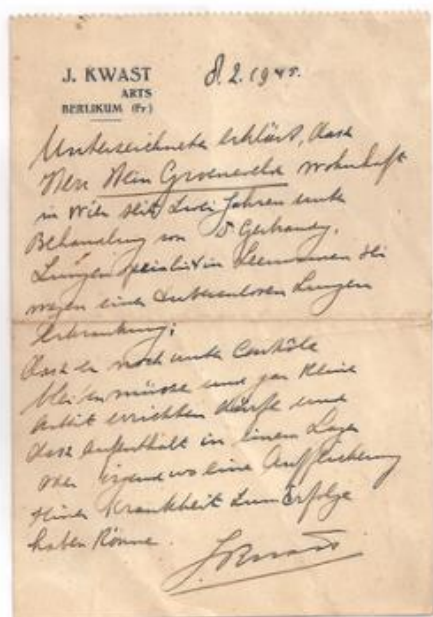 J. KWAST
ARTS
BERLIKUM (Fr.)
8.2.1945.
Unterzeichneter erklärt, dass
Herr Hein Groeneveld wohnhaft
in Wier seit zwei Jahren unter
Behandlung von Dr Gerbrandy,
Lungenspecialist in Leeuwarden sei
wegen einer tuberculosen Lungen
Erkrankung;
dass er noch unter Contrôle
bleiben müsse und gar keine
Arbeit verrichten dürfe und
dass Aufenthalt in einem Lager
oder irgendwo eine
seiner Krankheit zum Erfolge
haben könne.
J Kwast